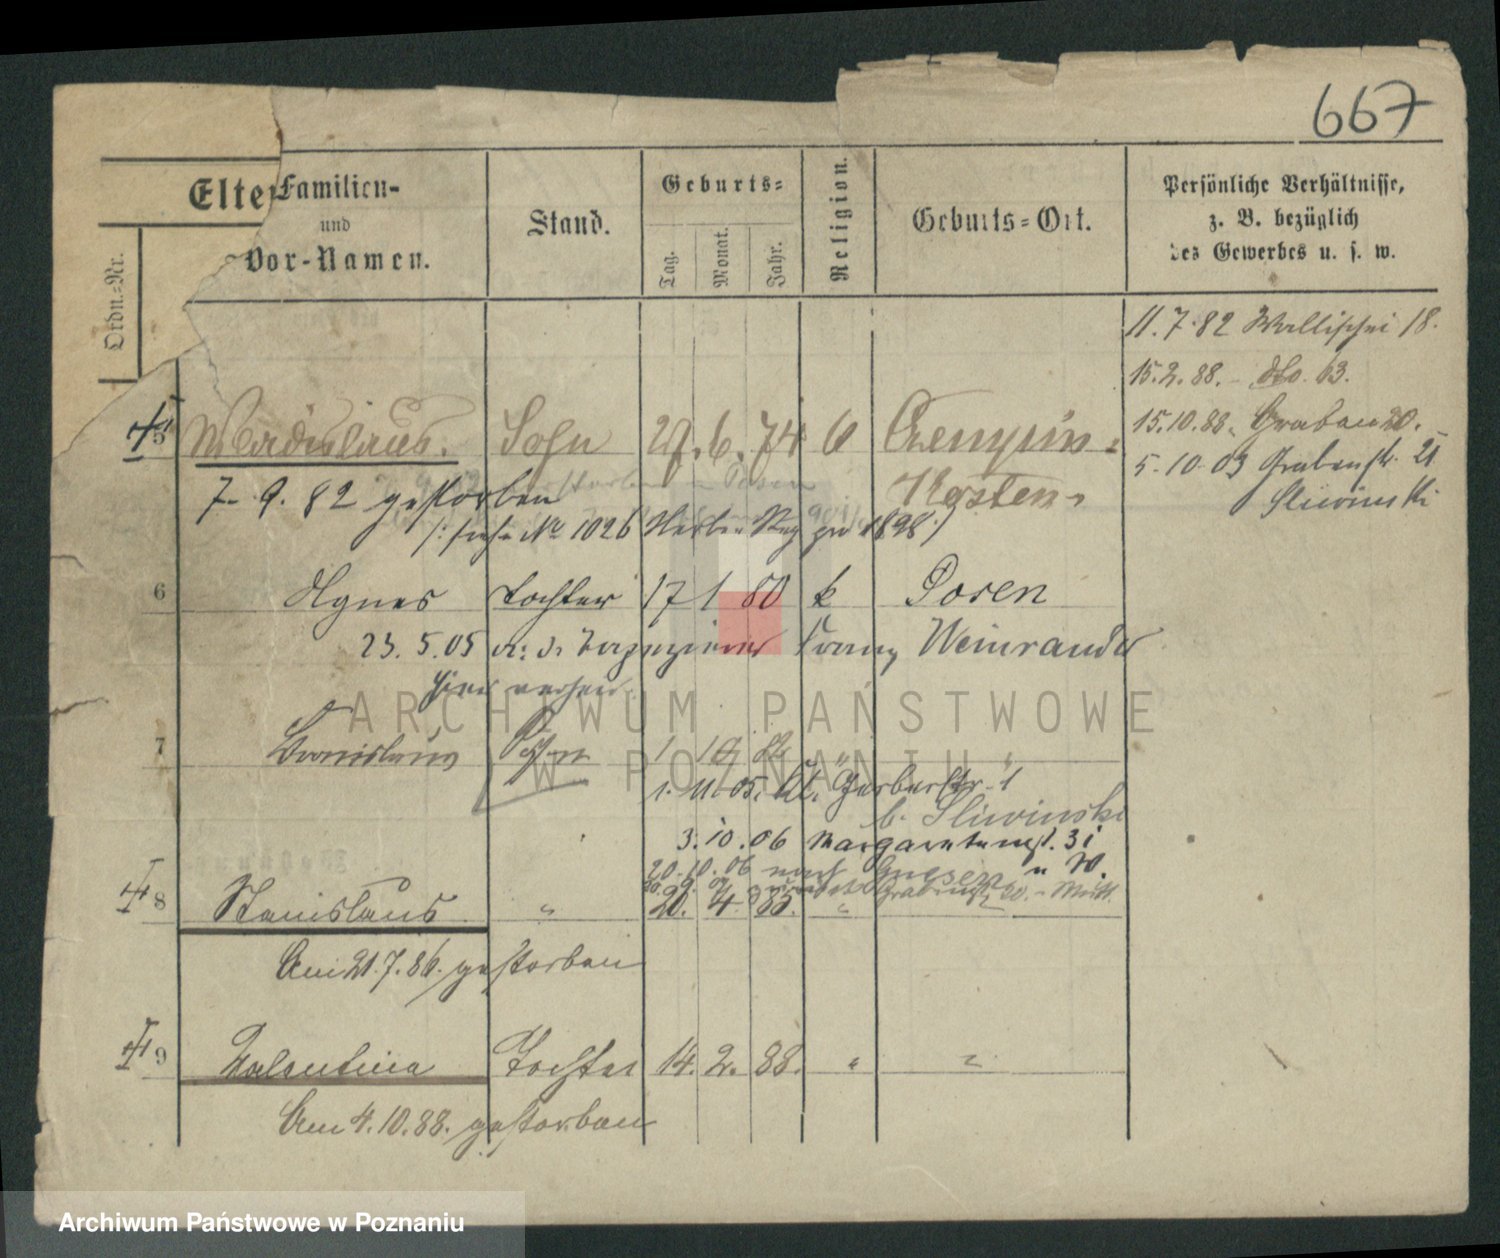 667
Elte
Familien-
und
Vor-Namen.
Stand.
Geburts=
Tag.
Monat.
Jahr.
Religion.
Geburts=Ort.
Persönliche Verhältnisse,
z. B. bezüglich
des Gewerbes u. s. w.
Ordn.=Nr.
11.7.82 Wallischei 18.
15.2.88. dto. 63.
15.10.88. Graben 20.
5.10.03 Grabenstr. 21
Sliwinski
5 Wladislaus. Sohn 27. 6. 74 Czempin=
Kosten
7. 9. 82 gestorben
/: siehe No 1026 Sterbe Reg pro 1898 /
6 Agnes Tochter 17 1 80 k Posen
23. 5. 05 Franz Weinrauder
7 Bronislaus Sohn 1
1. 11. 05. Kl. Gerberstr. 1
b. Sliwinski
3. 10. 06 Margaretenstr. 31
20. 10. 06 nach Gnesen
8 Stanislaus " 20. 4. 85. "
Am 21.7.86. gestorben
9 Valentina Tochter 14. 2. 88. " "
Am 4.10.88. gestorben
ARCHIWUM PAŃSTWOWE
W POZNANIU
Archiwum Państwowe w Poznaniu